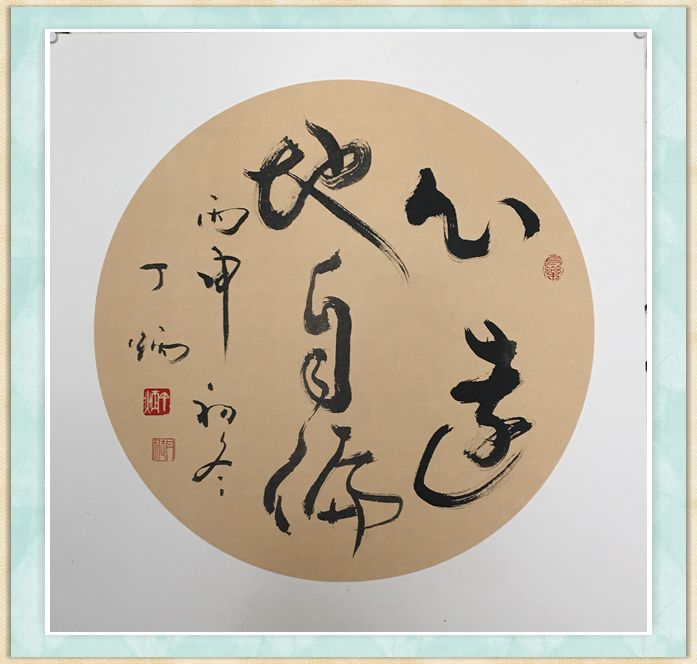 心遠
地自偏
丙申初冬
丁炳